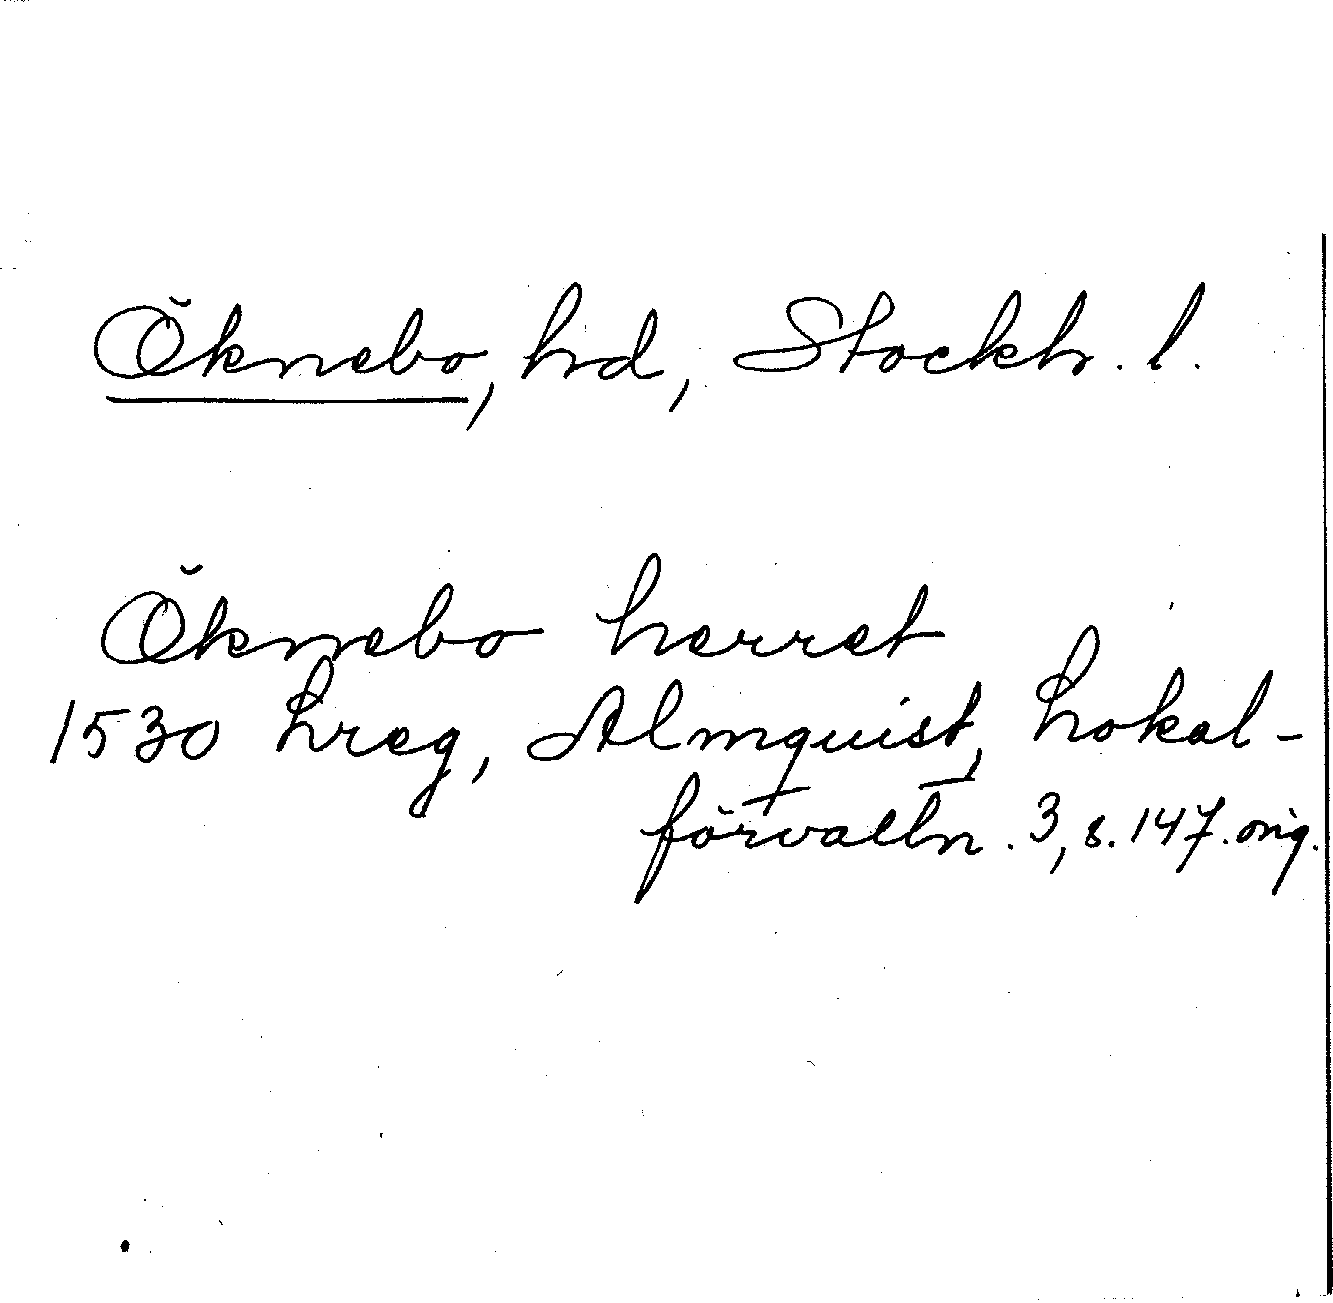 Öknebo, hd, Stockh. l.
Öknebo herret
1530 hreg, Almquist, Lokal-
förvaltn. 3, s. 147. orig.